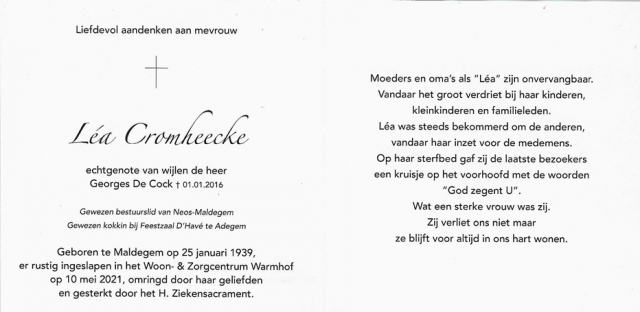 Liefdevol aandenken aan mevrouw
Léa Cromheecke
echtgenote van wijlen de heer
Georges De Cock † 01.01.2016
Gewezen bestuurslid van Neos-Maldegem
Gewezen kokkin bij Feestzaal D'Havé te Adegem
Geboren te Maldegem op 25 januari 1939,
er rustig ingeslapen in het Woon- & Zorgcentrum Warmhof
op 10 mei 2021, omringd door haar geliefden
en gesterkt door het H. Ziekensacrament.
Moeders en oma's als "Léa" zijn onvervangbaar.
Vandaar het groot verdriet bij haar kinderen,
kleinkinderen en familieleden.
Léa was steeds bekommerd om de anderen,
vandaar haar inzet voor de medemens.
Op haar sterfbed gaf zij de laatste bezoekers
een kruisje op het voorhoofd met de woorden
"God zegent U".
Wat een sterke vrouw was zij.
Zij verliet ons niet maar
ze blijft voor altijd in ons hart wonen.